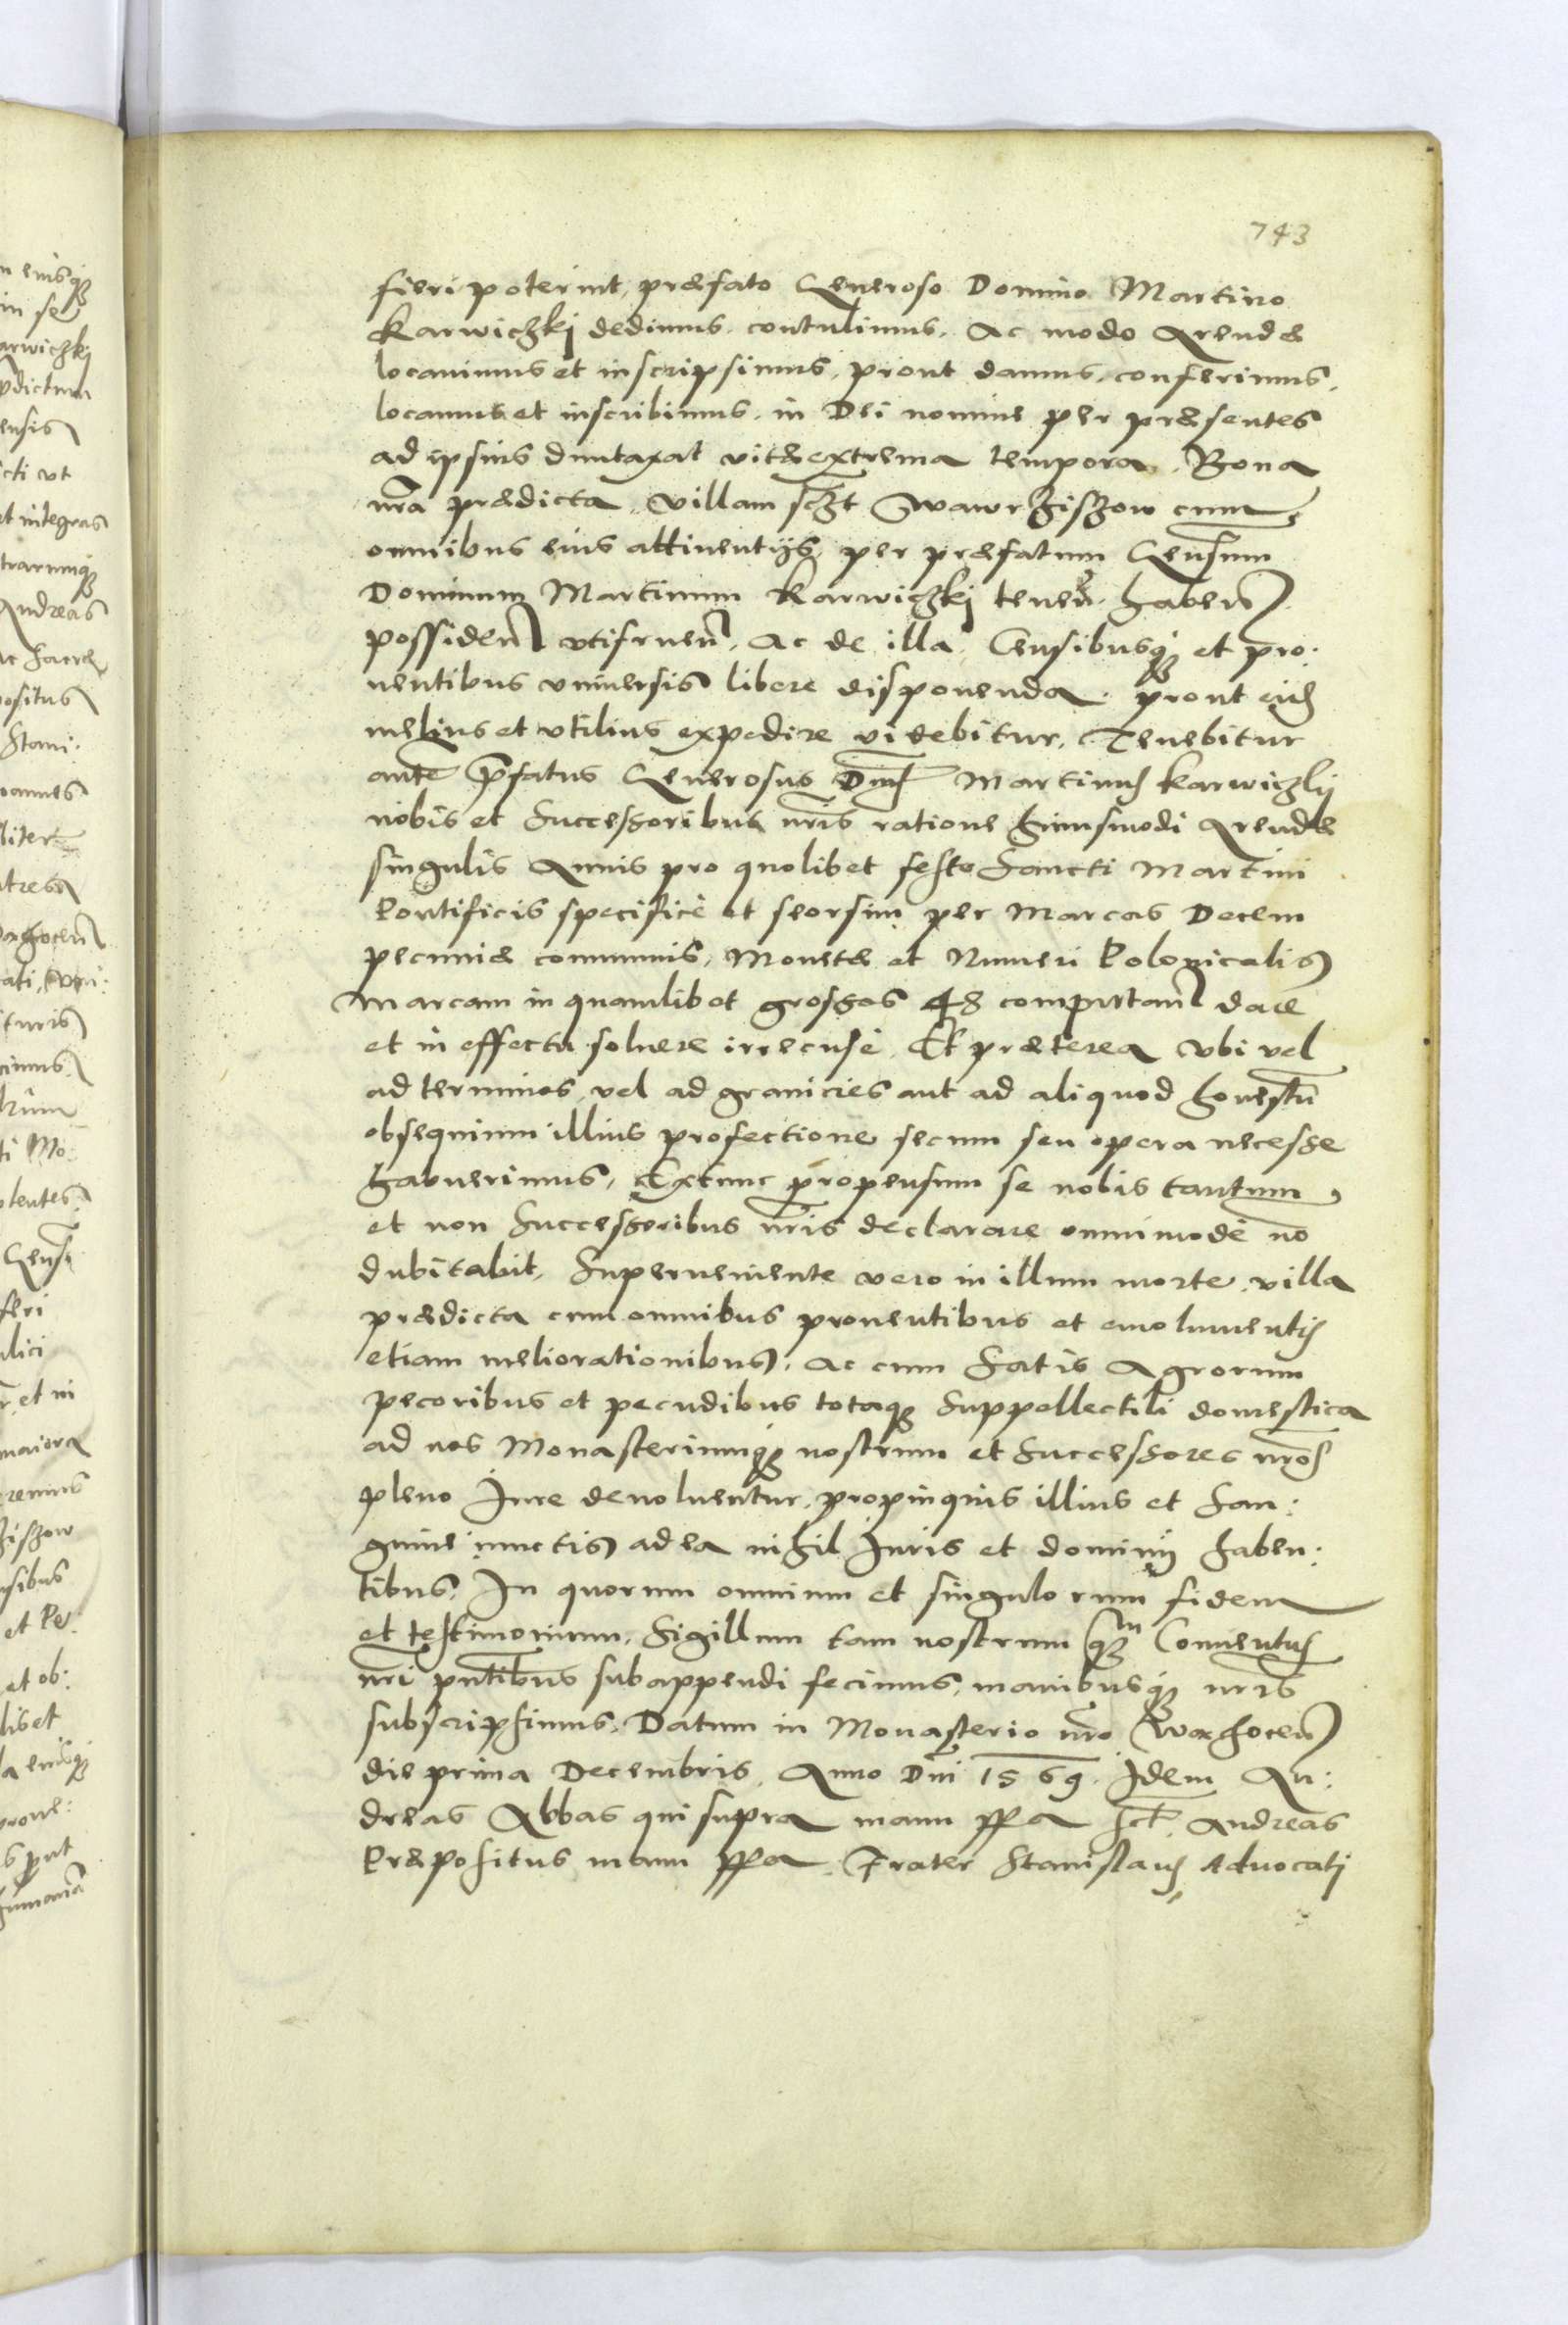 743
fieri poterint, præfato Generoso Domino Martino
Karwiczkj dedimus. contulimus. Ac modo Arendæ
locavimus et inscripsimus, prout damus, conferimus,
locamus et inscribimus. in Dei nomine per præsentes
ad ipsius duntaxat vitæ extrema tempora. Bona
nra prædicta. villam sczt Wawrziszow cum
omnibus eius attinentijs, per præfatum Gensum
Dominum Martinum Karwiczkj tenen. haben
possiden utifruen. Ac de illa, Censibusq et pro:
ventibus universis libere disponenda. prout eid
melius et utilius expedire videbitur. Tenebitur
ante pfatus Generosus Dnus Martinus Karwiczkij
nobis et Successoribus nris ratione huiusmodi Arendæ
singulis Annis pro quolibet festo Sancti Martini
Pontificis specificè et seorsim per Marcas Decem
pecuniæ communis, Monetæ et Numeri Polonicalis
Marcam in quamlibet grossos 48 computan dare
et in effectu solvere irrecusè. Et præterea ubi vel
ad terminos vel ad granicies aut ad aliquod honestu
obsequium illius profectione secum seu opera necesse
habuerimus, Extunc propensum se nobis tantum
et non Successoribus nris declarare omnimodè no
dubitabit, Superveniente vero in illum morte, villa
prædicta cum omnibus proventibus et emolumentis
etiam meliorationibus. ac cum Satis Agrorum
pecoribus et pecudibus totaq Suppellectili domestica
ad nos Monasteriumq nostrum et Successores nros
pleno Jure devolventur, propinquis illius et San:
guine iunctis ad ea nihil Juris et dominij haben:
tibus. In quorum omnium et singulorum fidem
et testimonium, Sigillum tam nostrum q Conventus
nri pntibus subappendi fecimus, manibusq nris
subscripsimus. Datum in Monasterio nro Wachocen
die prima Decembris, Anno Dni 1569. Idem An:
dreas Abbas qui supra manu ppa sst. Andreas
Præpositus manu ppa. Frater Stanislaus Advocatj